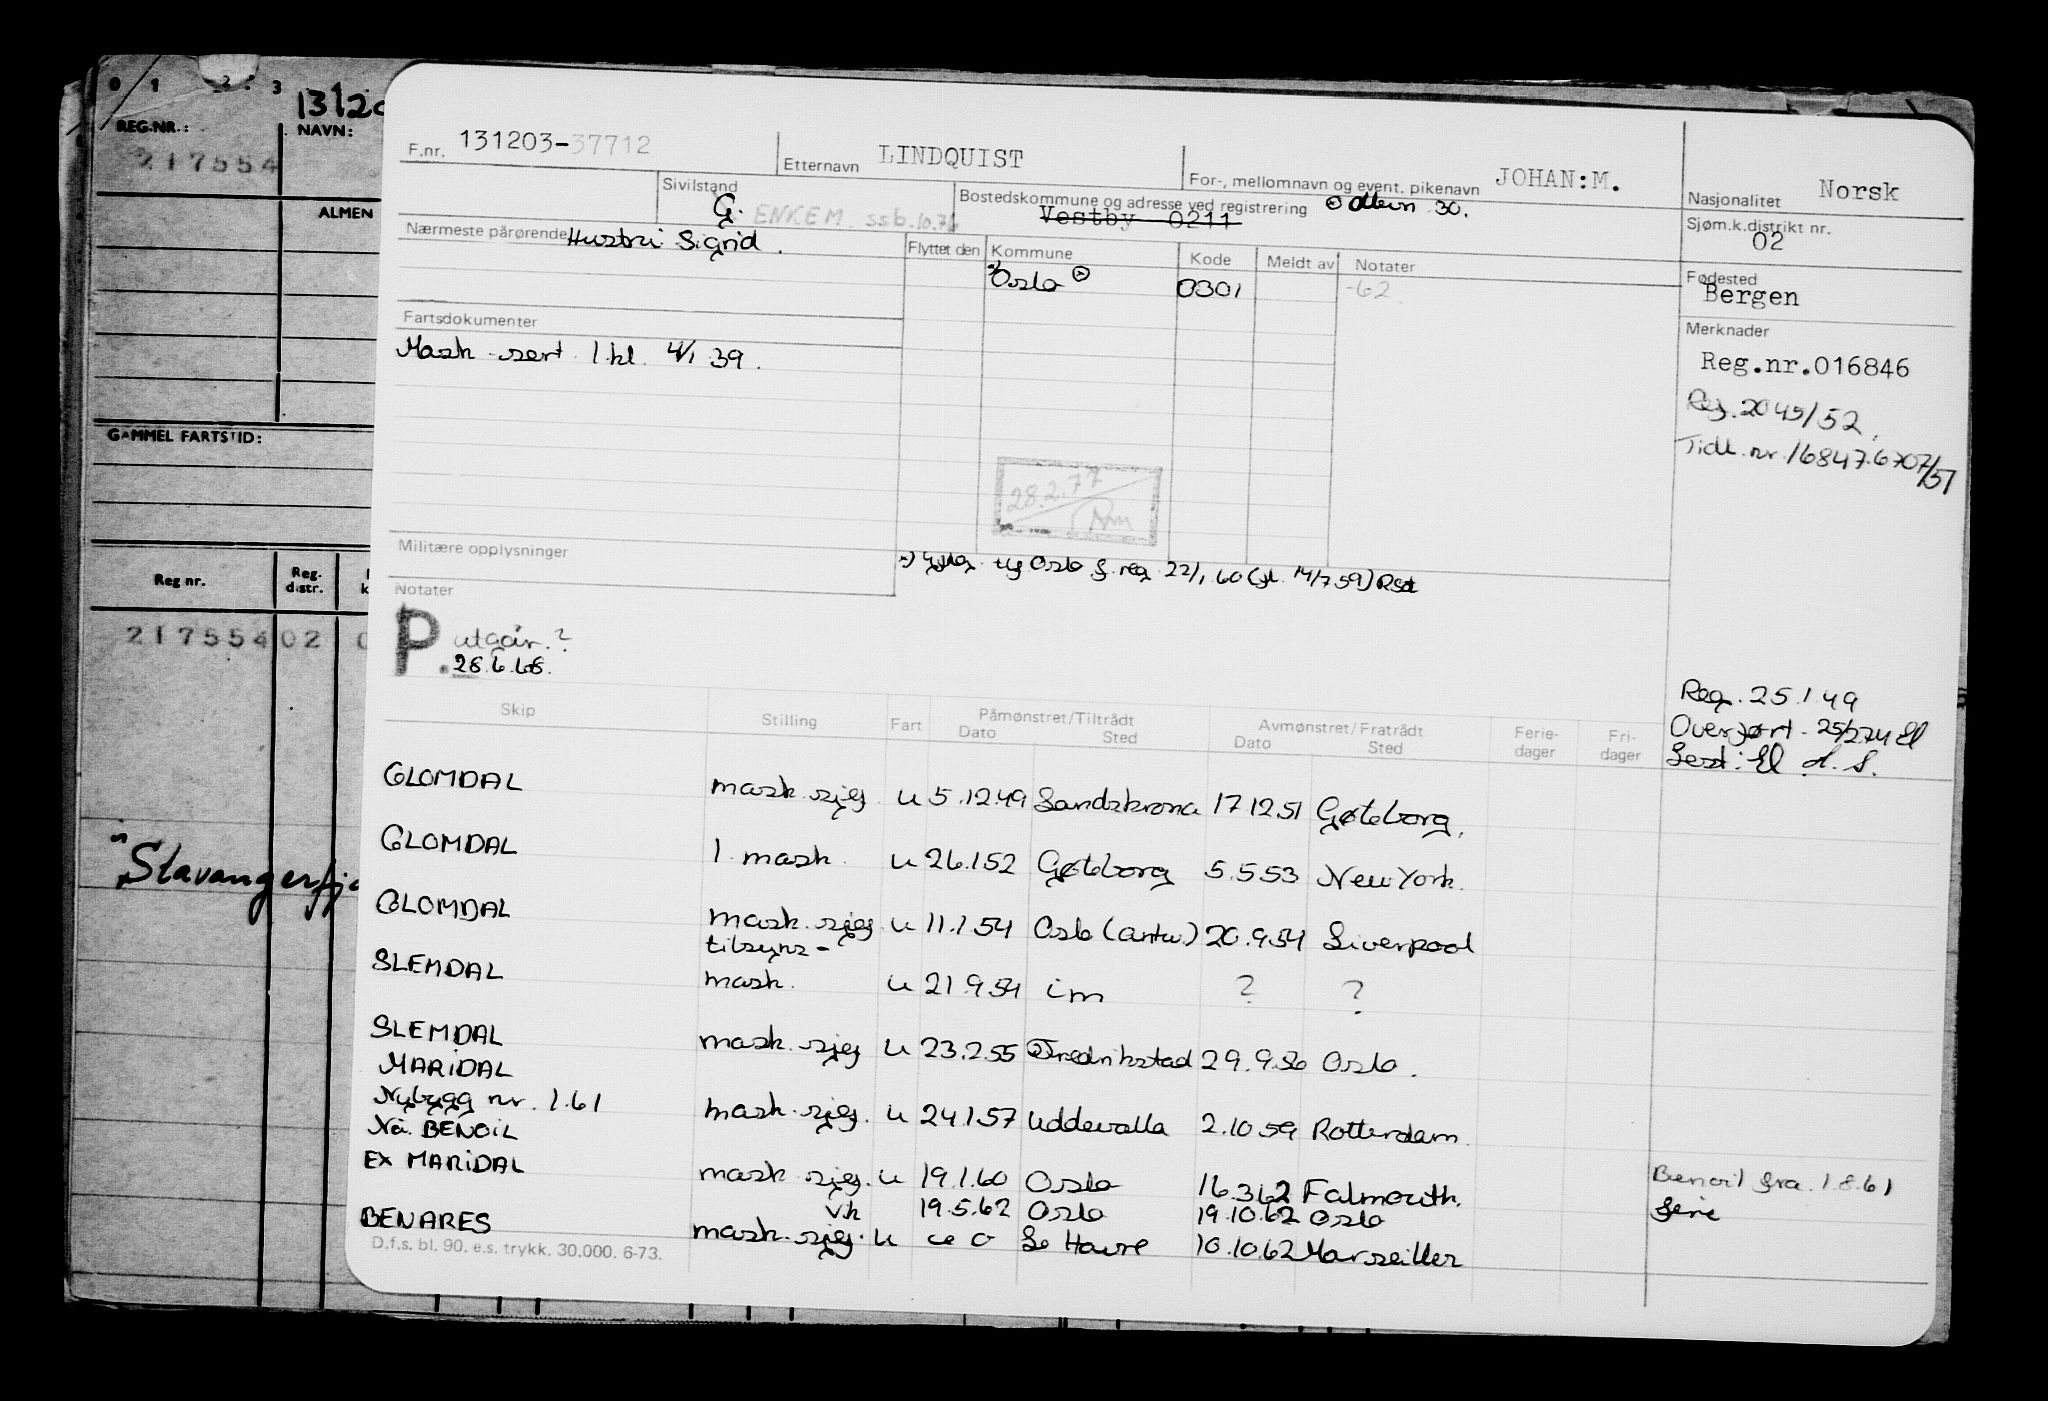 0 1 2 3
1312
REG.NR.:
NAVN:
217554
ALMEN
GAMMEL FARTSTID:
Reg nr.
Reg. distr.
217554 02
"Stavangerfj
F.nr. 131203-37712
Etternavn LINDQUIST
For-, mellomnavn og event. pikenavn JOHAN:M.
Nasjonalitet Norsk
Sivilstand G. ENKEM. ssb.10.76
Bostedskommune og adresse ved registrering
Vestby 0211
30.
Sjøm.k.distrikt nr. 02
Nærmeste pårørende Hustru Sigrid.
Flyttet den Kommune Kode Meldt av Notater
Oslo 0301 -62.
Fødested
Bergen
Fartsdokumenter
Mask sert 1.kl. 4/1 39.
Merknader
Reg.nr.016846
Reg. 2045/52.
Tidl. nr. 16847.6707/51
28.2.77
Militære opplysninger
Oslo f. reg. 22/1 60 (fl. 14/7 59)
Notater
P. utgår.?
Reg. 25.1.49
Overført 25/2 74 El
Sest: El d. S.
Skip Stilling Fart Påmønstret/Tiltrådt Dato Sted Avmønstret/Fratrådt Dato Sted Ferie-dager Fri-dager
GLOMDAL mask.sjef u 5.12.49 Landskrona 17.12.51 Gøteborg.
GLOMDAL 1 mask. u 26.1.52 Gøteborg 5.5.53 New York.
GLOMDAL mask.sjef u 11.1.54 Oslo (antw.) 20.9.54 Liverpool
SLEMDAL tilsyns-mask. u 21.9.54 im ? ?
SLEMDAL mask.sjef u 23.2.55 Fredrikstad 29.9.56 Oslo.
MARIDAL
Nybygg nr. 161 mask.sjef. u 24.1.57 Uddevalla 2.10.59 Rotterdam.
Nå. BENOIL
EX MARIDAL mask sjef. u 19.1.60 Oslo 16.3.62 Falmouth. Benoil fra 1.8.61
vk 19.5.62 Oslo 19.10.62 Oslo ferie
BENARES mask.sjef. u Le Havre 10.10.62 Marseiller
D.f.s. bl. 90. e.s. trykk. 30.000. 6-73.